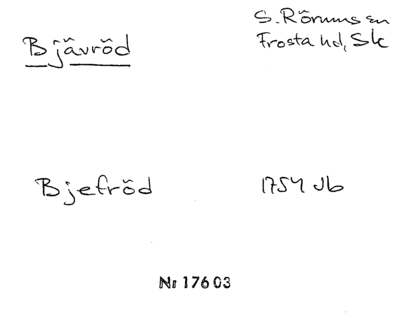 Bjävröd
S. Rörums sn
Frosta hd, Sk
Bjefröd
1754 Jb
Nr 17603